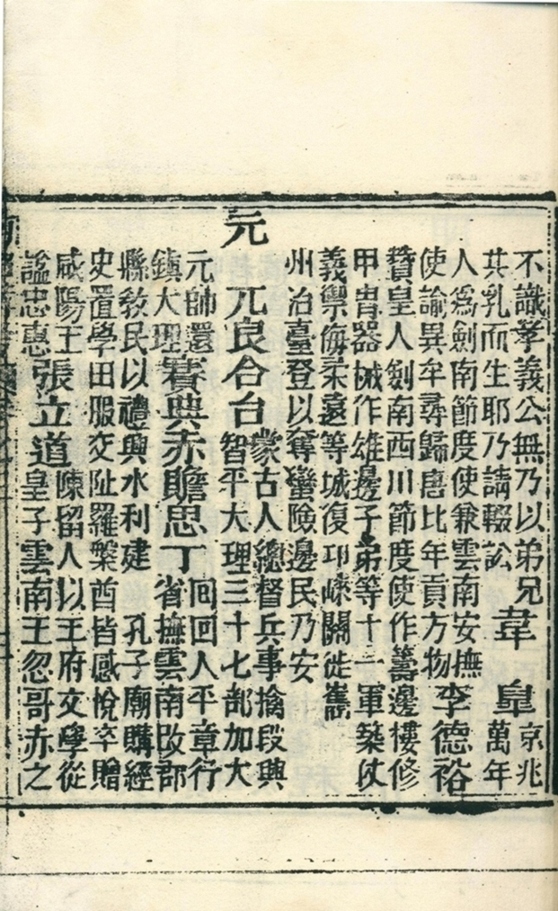 不識孝義公無乃以弟兄
其乳而生耶乃請輟訟
韋皋
京兆
萬年
人爲劍南節度使兼雲南安撫
使諭異牟尋歸唐比年貢方物
李德裕
贊皇人劍南西川節度使作籌邊樓修
甲冑器械作雄邊子弟等十一軍築仗
義禦侮柔遠等城復邛崍關徙巂
州治臺登以奪蠻險邊民乃安
元
兀良合台
蒙古人總督兵事擒段興
智平大理三十七部加大
元帥還
鎮大理
賽典赤贍思丁
回回人平章行
省撫雲南改郡
縣教民以禮興水利建 孔子廟購經
史置學田服交阯羅槃酋皆感悅卒贈
咸陽王
諡忠惠
張立道
陳留人以王府文學從
皇子雲南王忽哥赤之